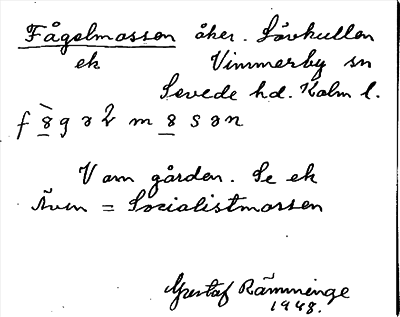 Fågelmossen åker. Lövkullen
ek Vimmerby sn
Sevede hd. Kalm l.
V om gården. Se ek
Även = Socialistmossen
Gustaf Rämminge
1948.